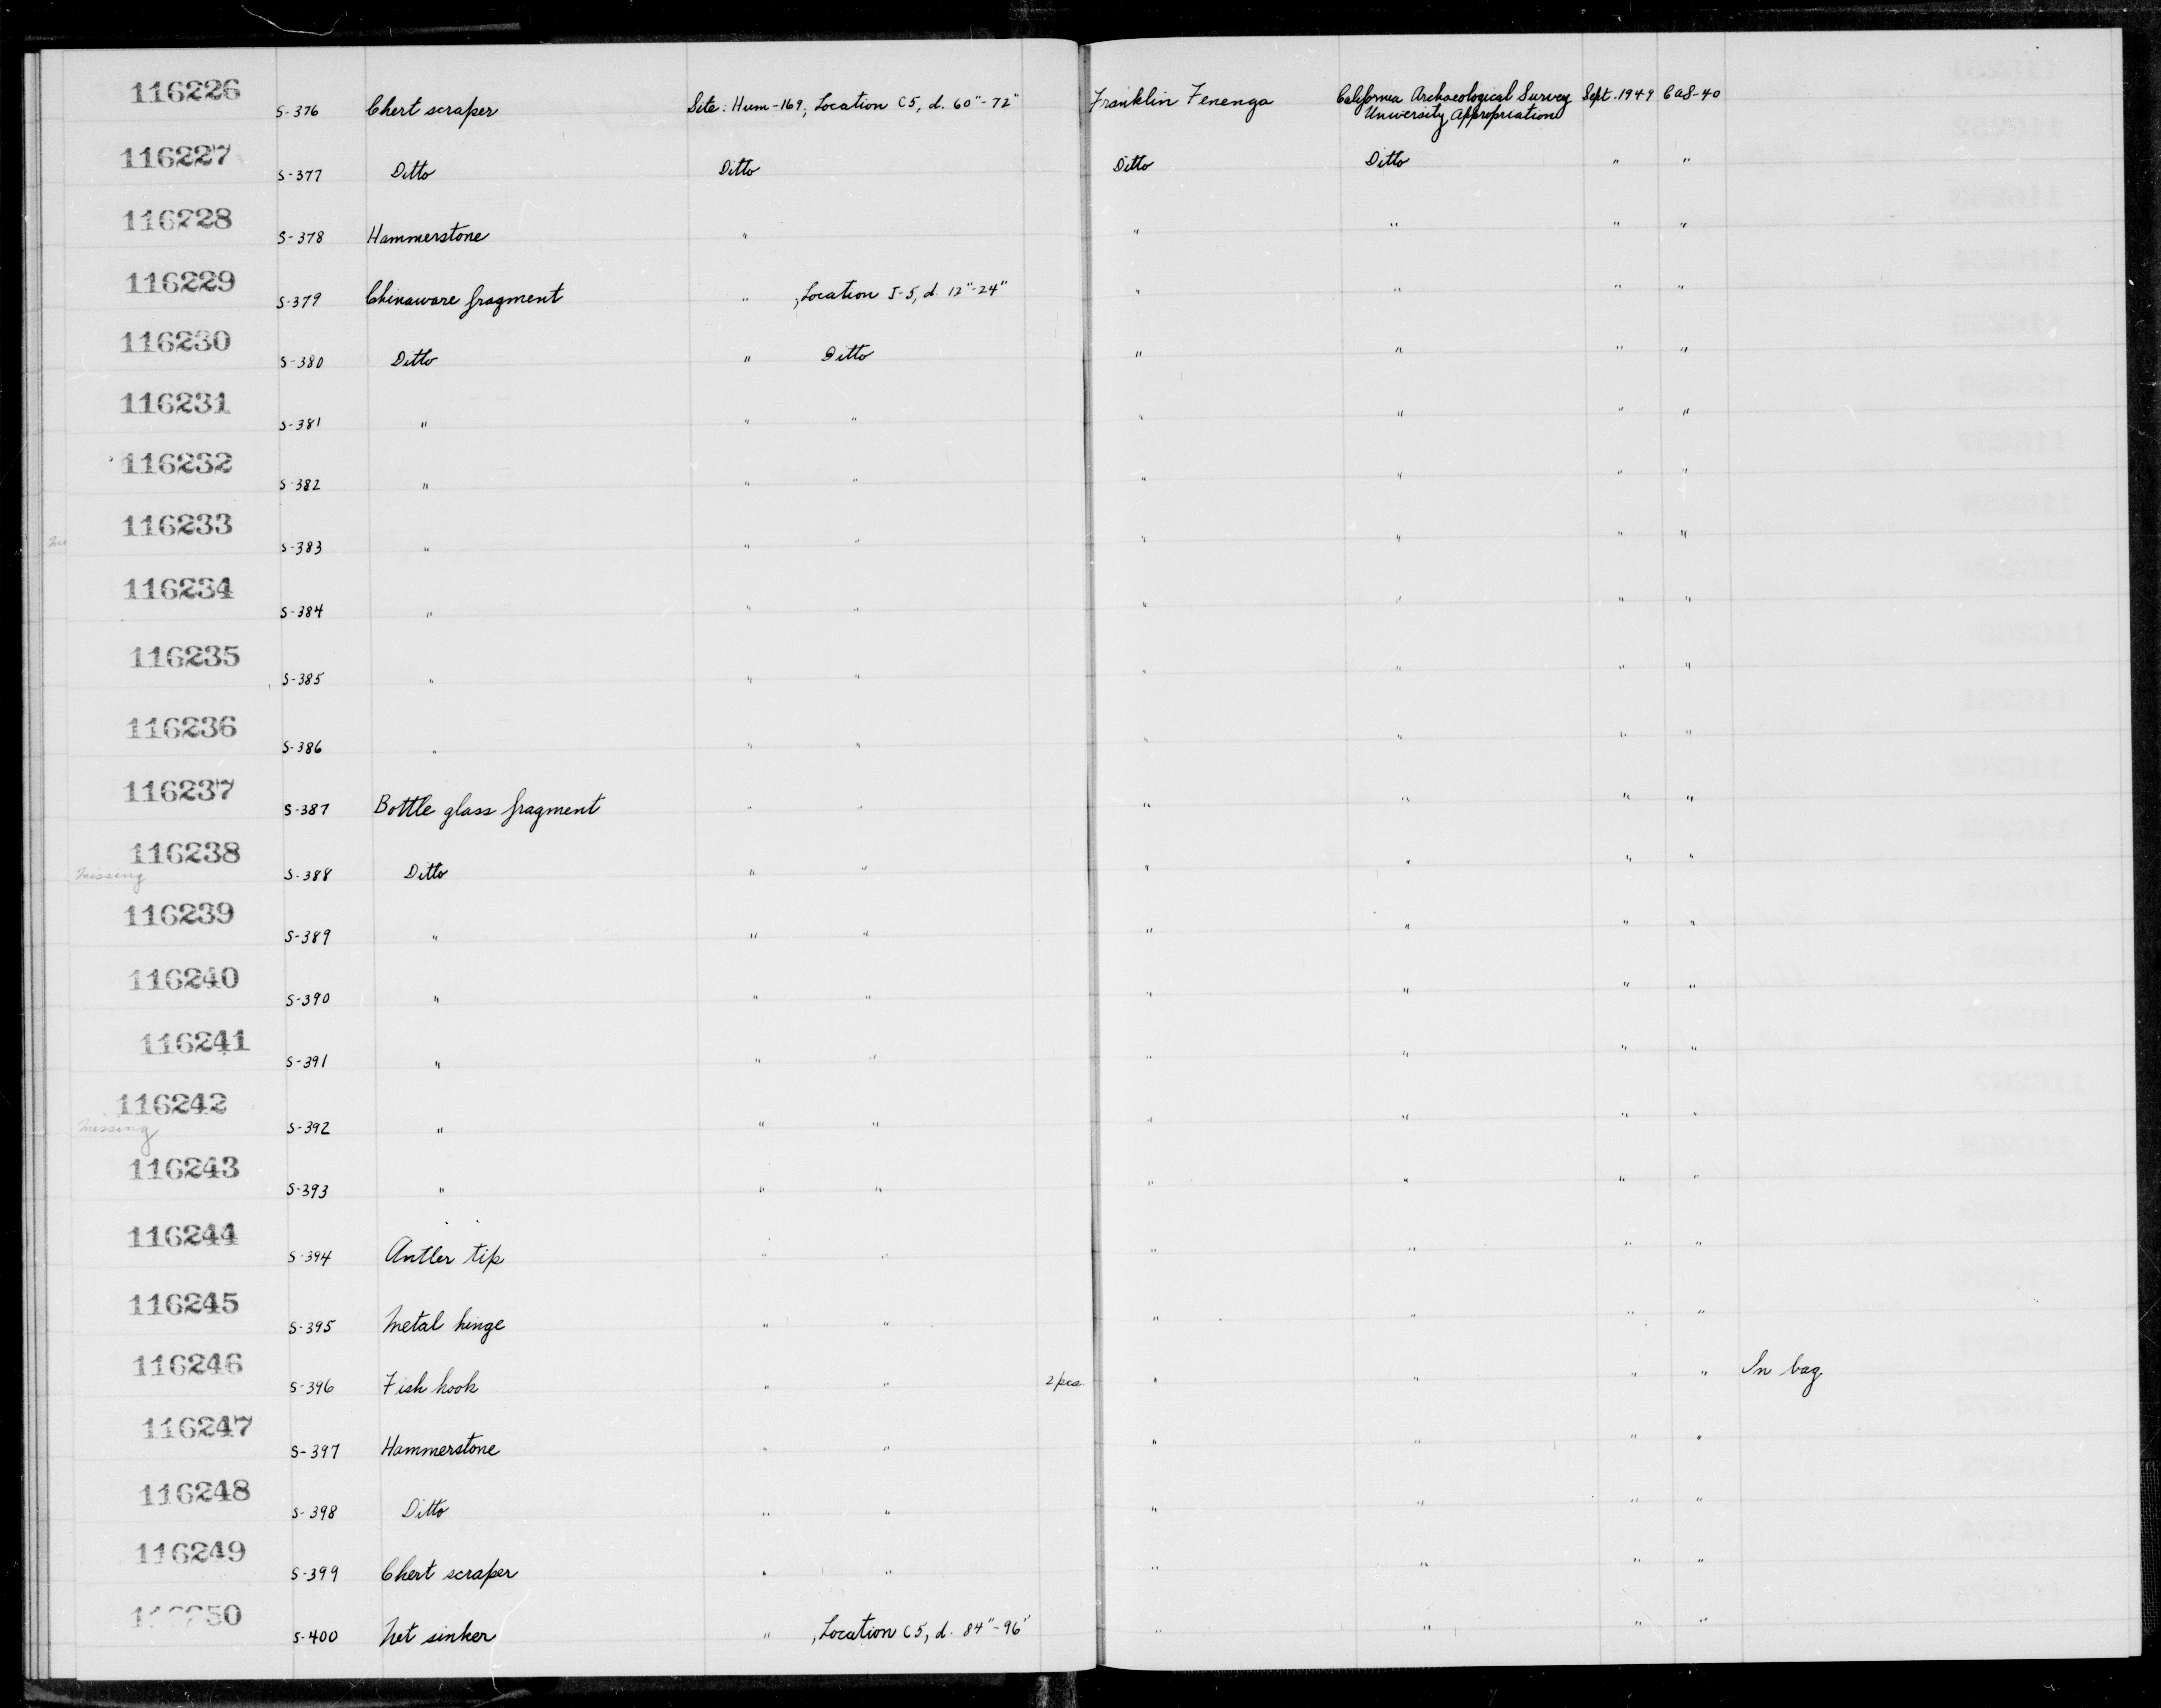 116226 S-376 Chert scraper Site: Hum-169; Location C5, d. 60"-72" Franklin Fenenga California Archaeological Survey Sept. 1949 CAS-40
University Appropriation
116227 S-377 Ditto Ditto Ditto Ditto " "
116228 S-378 Hammerstone " " " " "
116229 S-379 Chinaware fragment " , Location J-5, d. 12"-24" " " " "
116230 S-380 Ditto " Ditto " " " "
116231 S-381 " " " " " " "
116232 S-382 " " " " " " "
116233 S-383 " " " " " " "
116234 S-384 " " " " " " "
116235 S-385 " " " " " " "
116236 S-386 " " " " " " "
116237 S-387 Bottle glass fragment " " " " " "
116238 missing S-388 Ditto " " " " " "
116239 S-389 " " " " " " "
116240 S-390 " " " " " " "
116241 S-391 " " " " " " "
116242 missing S-392 " " " " " " "
116243 S-393 " " " " " " "
116244 S-394 Antler tip " " " " " "
116245 S-395 Metal hinge " " " " " "
116246 S-396 Fish hook " " 2 pcs. " " " " In bag
116247 S-397 Hammerstone " " " " " "
116248 S-398 Ditto " " " " " "
116249 S-399 Chert scraper " " " " " "
116250 S-400 Net sinker " , Location C5, d. 84"-96" " " " "